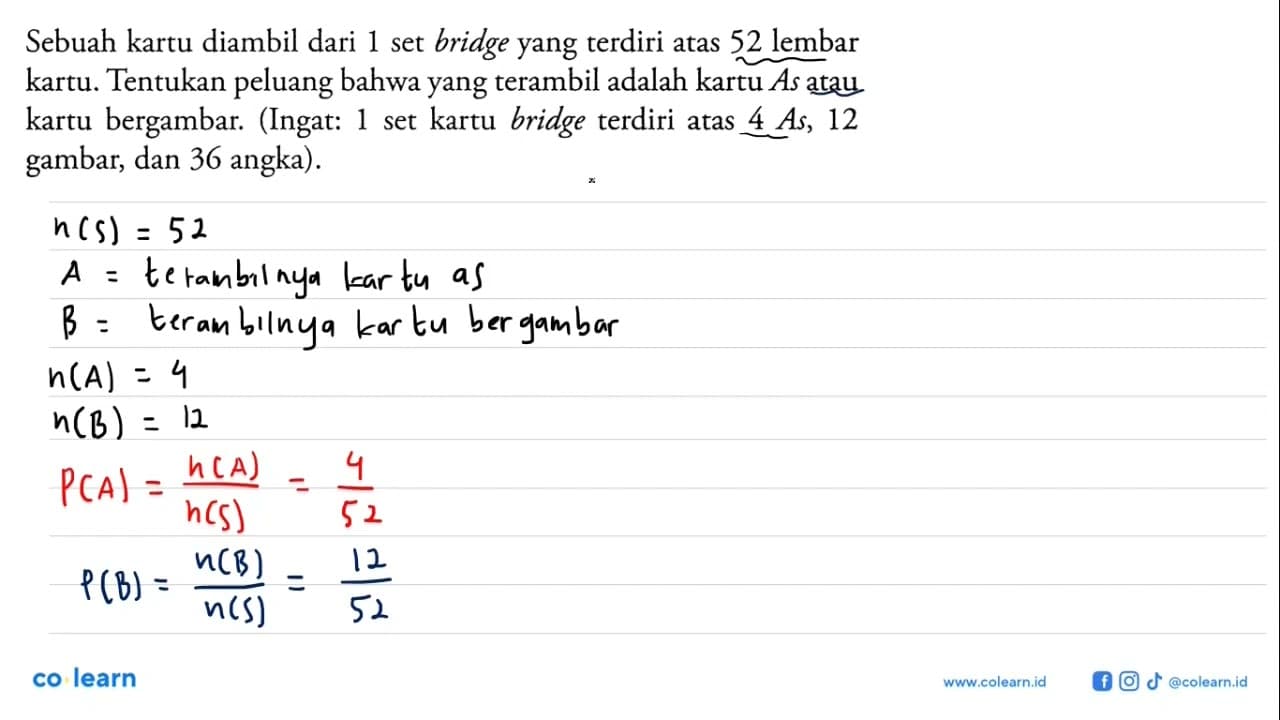 Sebuah kartu diambil dari 1 set bridge yang terdiri atas 52 lembar
kartu. Tentukan peluang bahwa yang terambil adalah kartu As atau
kartu bergambar. (Ingat: 1 set kartu bridge terdiri atas 4 As, 12
gambar, dan 36 angka).
n(S) = 52
A = terambilnya kartu as
B = terambilnya kartu bergambar
n(A) = 4
n(B) = 12
P(A) = n(A)/n(S) = 4/52
P(B) = n(B)/n(S) = 12/52
co learn
www.colearn.id
@colearn.id